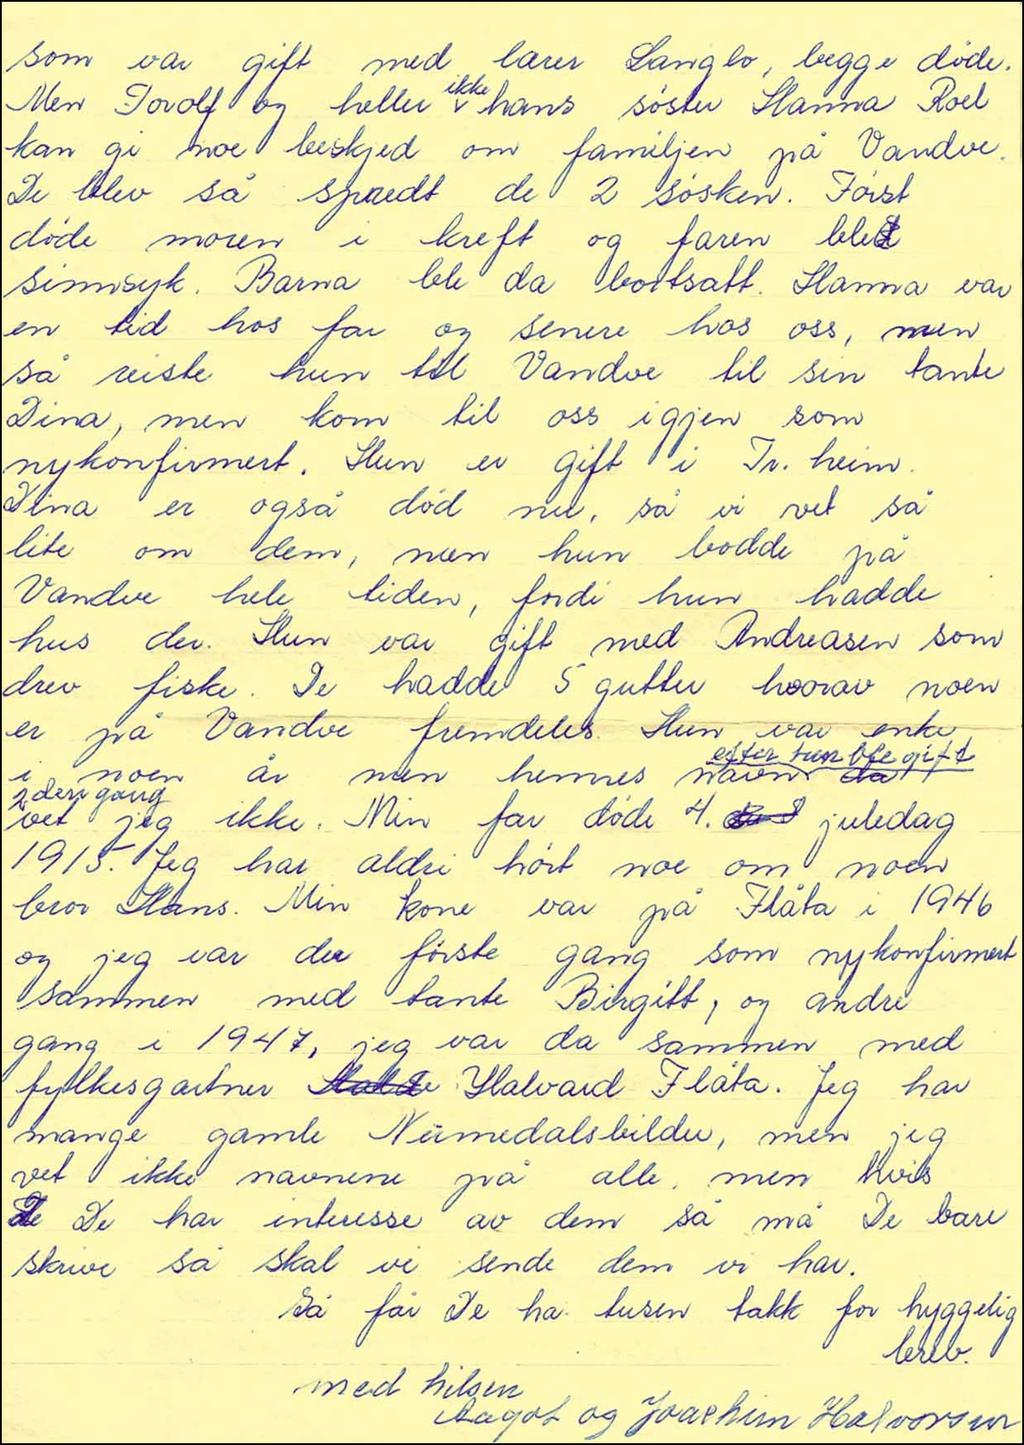 som var gift med lærer Langlo, begge døde.
Men Torolf og heller ikke hans søster Hanna Roel
kan gi noe beskjed om familjen på Vandve.
De blev så spredt de 2 søsken. Først
døde moren i kreft og faren ble
sinnsyk. Barna ble da bortsatt. Hanna var
en tid hos far og senere hos oss, men
så reiste hun til Vandve til sin tante
Dina, men kom til oss igjen som
nykonfirmert. Hun er gift i Tr. heim.
Dina er også død nu, så vi vet så
lite om dem, men hun bodde på
Vandve hele tiden, fordi hun hadde
hus der. Hun var gift med Andreasen som
drev fiske. De hadde 5 gutter hvorav noen
er på Vandve fremdeles. Hun var enke
i noen år men hennes navn efter hun ble gift
2den gang
vet jeg ikke. Min far døde 4. juledag
1915. Jeg har aldri hørt noe om noen
bror Hans. Min kone var på Flåta i 1946
og jeg var der første gang som nykonfirmert
sammen med tante Birgitt, og andre
gang i 1947, jeg var da sammen med
fylkesgartner Halvard Flåta. Jeg har
mange gamle Numedalsbilder, men jeg
vet ikke navnene på alle, men hvis
De har interesse av dem så må De bare
skrive så skal vi sende dem vi har.
Så får De ha tusen takk for hyggelig
brev.
med hilsen
Aagot og Joachim Halvorsen